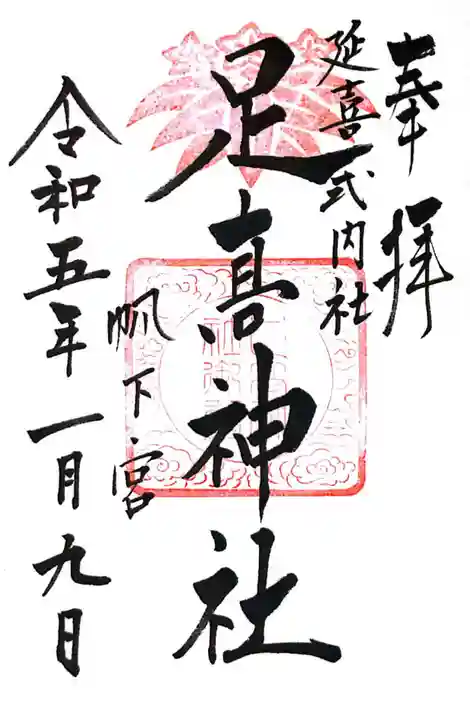 奉拝
延喜式内社
足高神社
帆下宮
令和五年一月九日